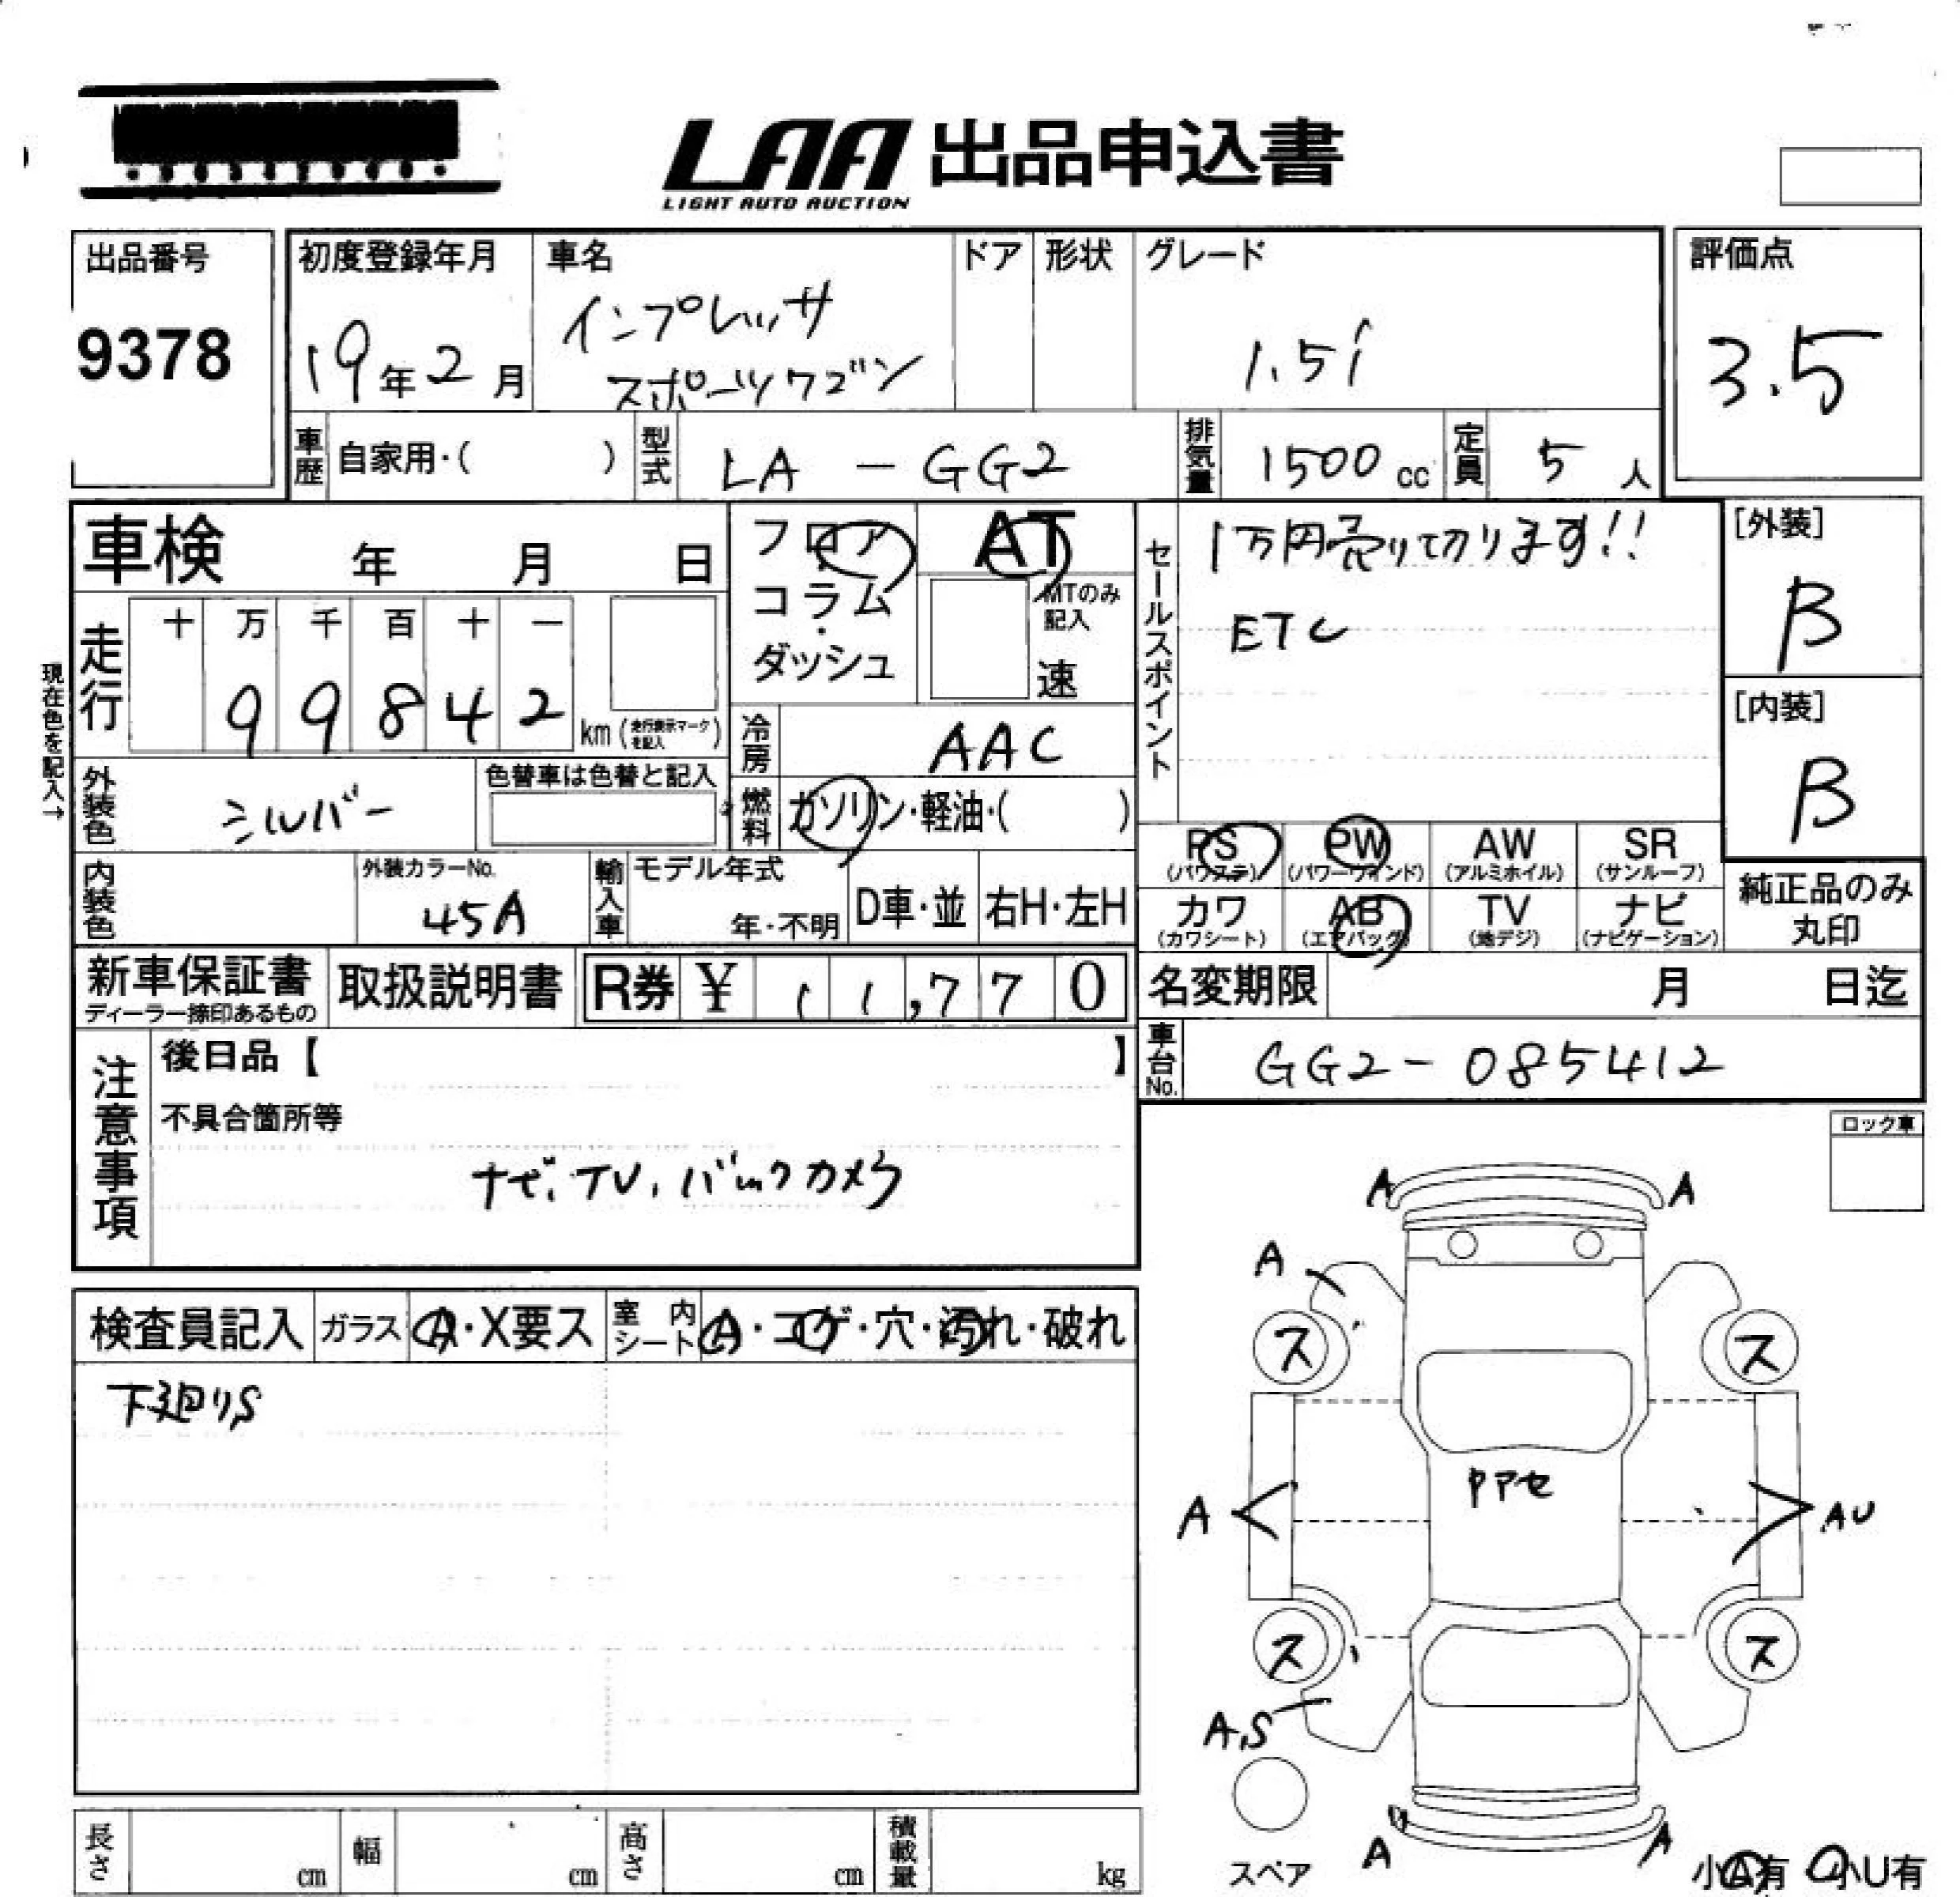 LAA 出品申込書
LIGHT AUTO AUCTION
出品番号
9378
初度登録年月
19年2月
車名
インプレッサ
スポーツワゴン
ドア
形状
グレード
1.5i
評価点
3.5
車歴 自家用・( )
型式 LA - GG2
排気量 1500cc
定員 5人
車検 年 月 日
フロア・コラム・ダッシュ
AT
MTのみ記入
速
セールスポイント
1万円売り切ります!!
ETC
[外装]
B
[内装]
B
現在色を記入→
走行
十 万 千 百 十 一
9 9 8 4 2 km (走行表示マークを記入)
冷房 AAC
外装色 シルバー
色替車は色替と記入
燃料 ガソリン・軽油・( )
PS (パワステ)
PW (パワーウィンド)
AW (アルミホイル)
SR (サンルーフ)
カワ (カワシート)
AB (エアバッグ)
TV (地デジ)
ナビ (ナビゲーション)
純正品のみ丸印
内装色
外装カラーNo.
45A
輸入車
モデル年式
年・不明
D車・並
右H・左H
新車保証書
ディーラー捺印あるもの
取扱説明書
R券 ¥ 11,770
名変期限 月 日迄
車台No. GG2-085412
注意事項
後日品【 】
不具合箇所等
ナビ、TV、バックカメラ
ロック車
検査員記入
ガラス
A・X要ス
室内シート
A・コゲ・穴・汚れ・破れ
下廻りS
A A
A
ス ス
A AU
ス ス
A,S
スペア
A A
小A有 小U有
長さ cm
幅 cm
高さ cm
積載量 kg